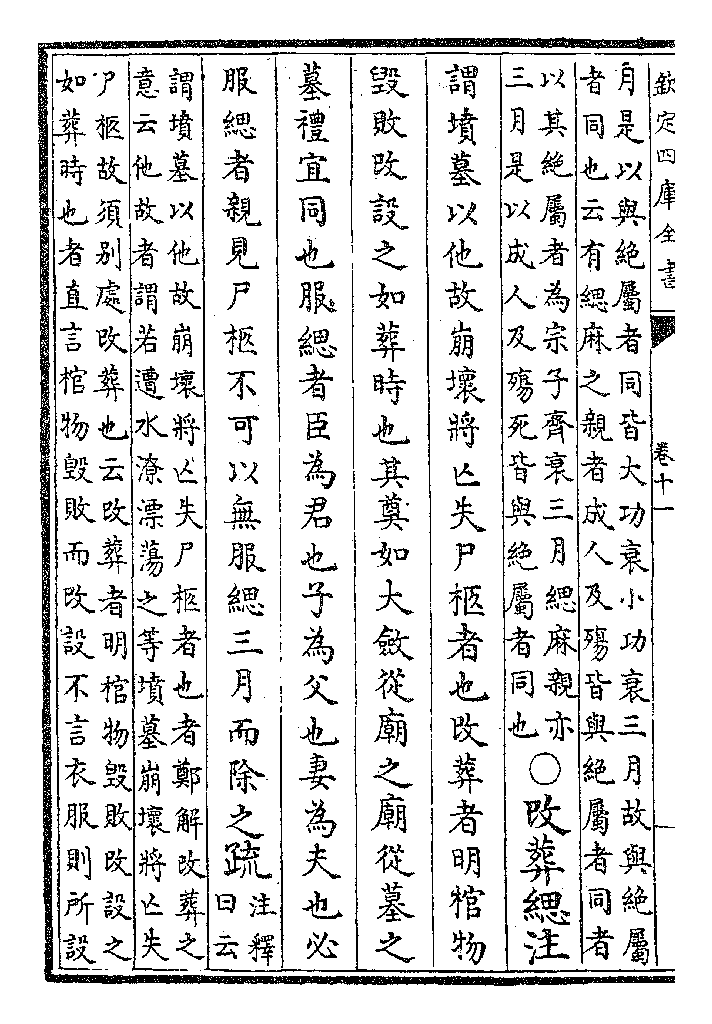 欽定四庫全書 卷十一
月是以與絶屬者同皆大功衰小功衰三月故與絶屬
者同也云有緦麻之親者成人及殤皆與絶屬者同者
以其絶屬者為宗子齊衰三月緦麻親亦
三月是以成人及殤死皆與絶屬者同也
○改葬緦注
謂墳墓以他故崩壞將亡失尸柩者也改葬者明棺物
毁敗改設之如葬時也其奠如大斂從廟之廟從墓之
墓禮宜同也服緦者臣為君也子為父也妻為夫也必
服緦者親見尸柩不可以無服緦三月而除之疏
注釋
曰云
謂墳墓以他故崩壞將亡失尸柩者也者鄭解改葬之
意云他故者謂若遭水潦漂蕩之等墳墓崩壞將亡失
尸柩故須别處改葬也云改葬者明棺物毁敗改設之
如葬時也者直言棺物毁敗而改設不言衣服則所設